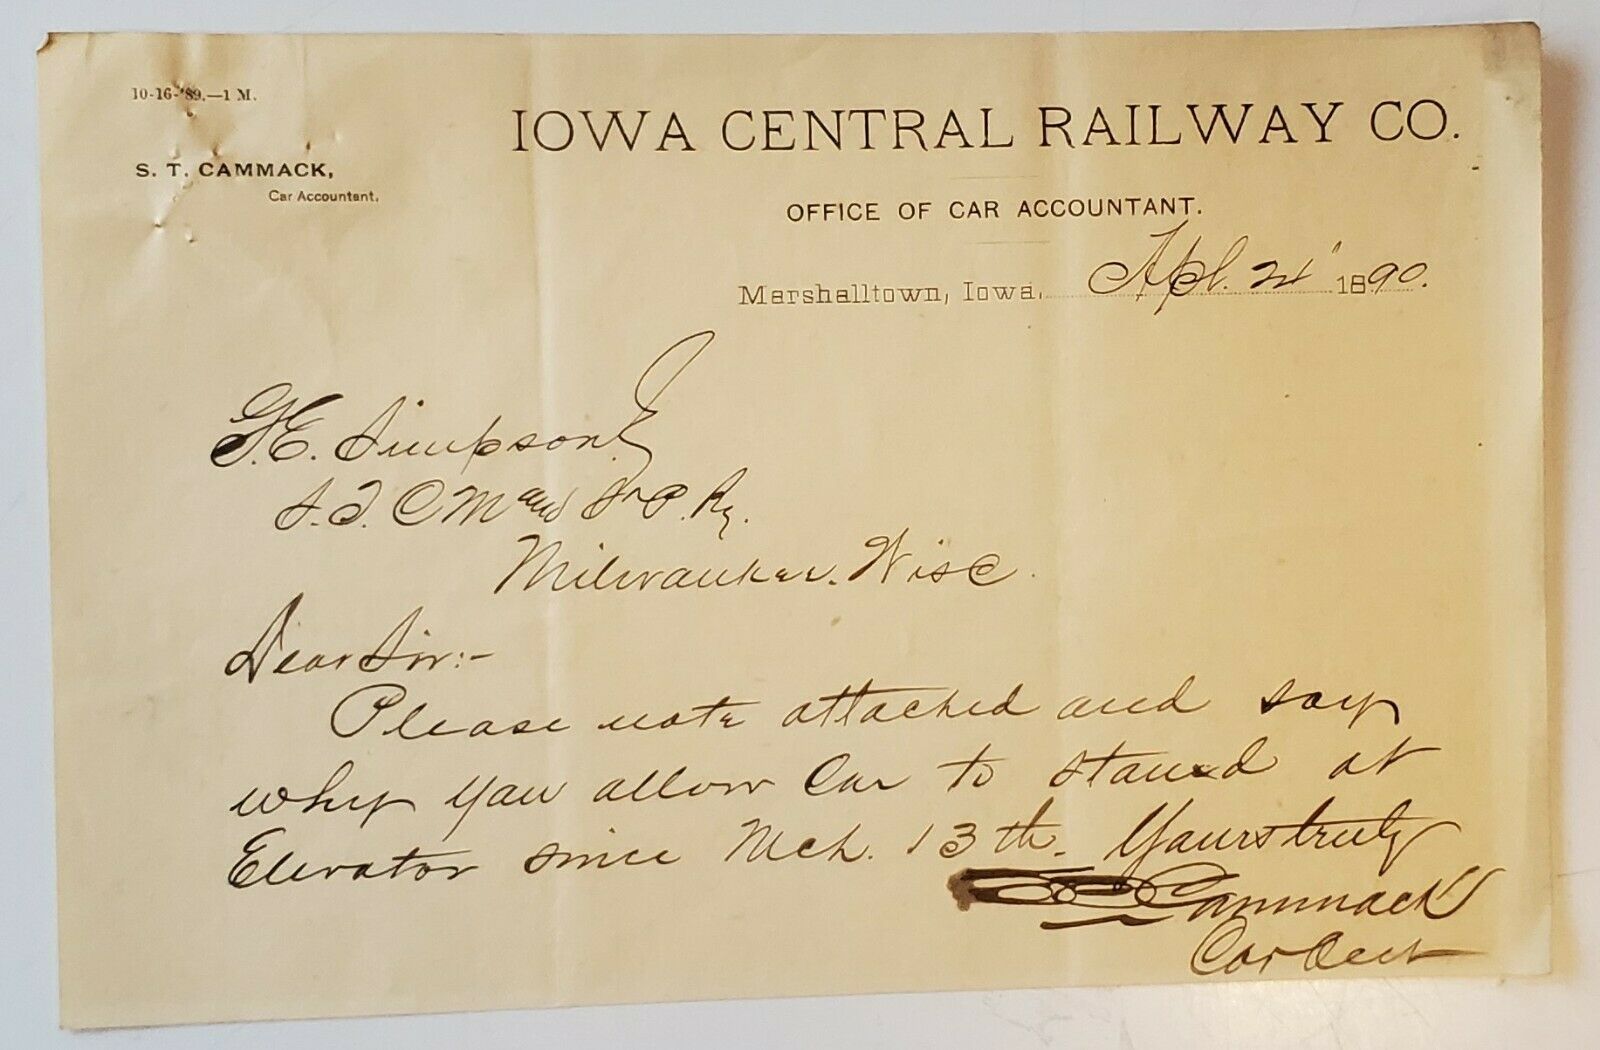 10-16-'89.—1 M.
S. T. CAMMACK,
Car Accountant.
IOWA CENTRAL RAILWAY CO.
OFFICE OF CAR ACCOUNTANT.
Marshalltown, Iowa, Apl. 1890.
G.E. Simpson
C M and St P. Ry.
Milwaukee. Wisc.
Dear Sir:-
Please note attached and say
why you allow Car to stand at
Elevator since Mch. 13th. Yours truly
Cammack
Car Acct